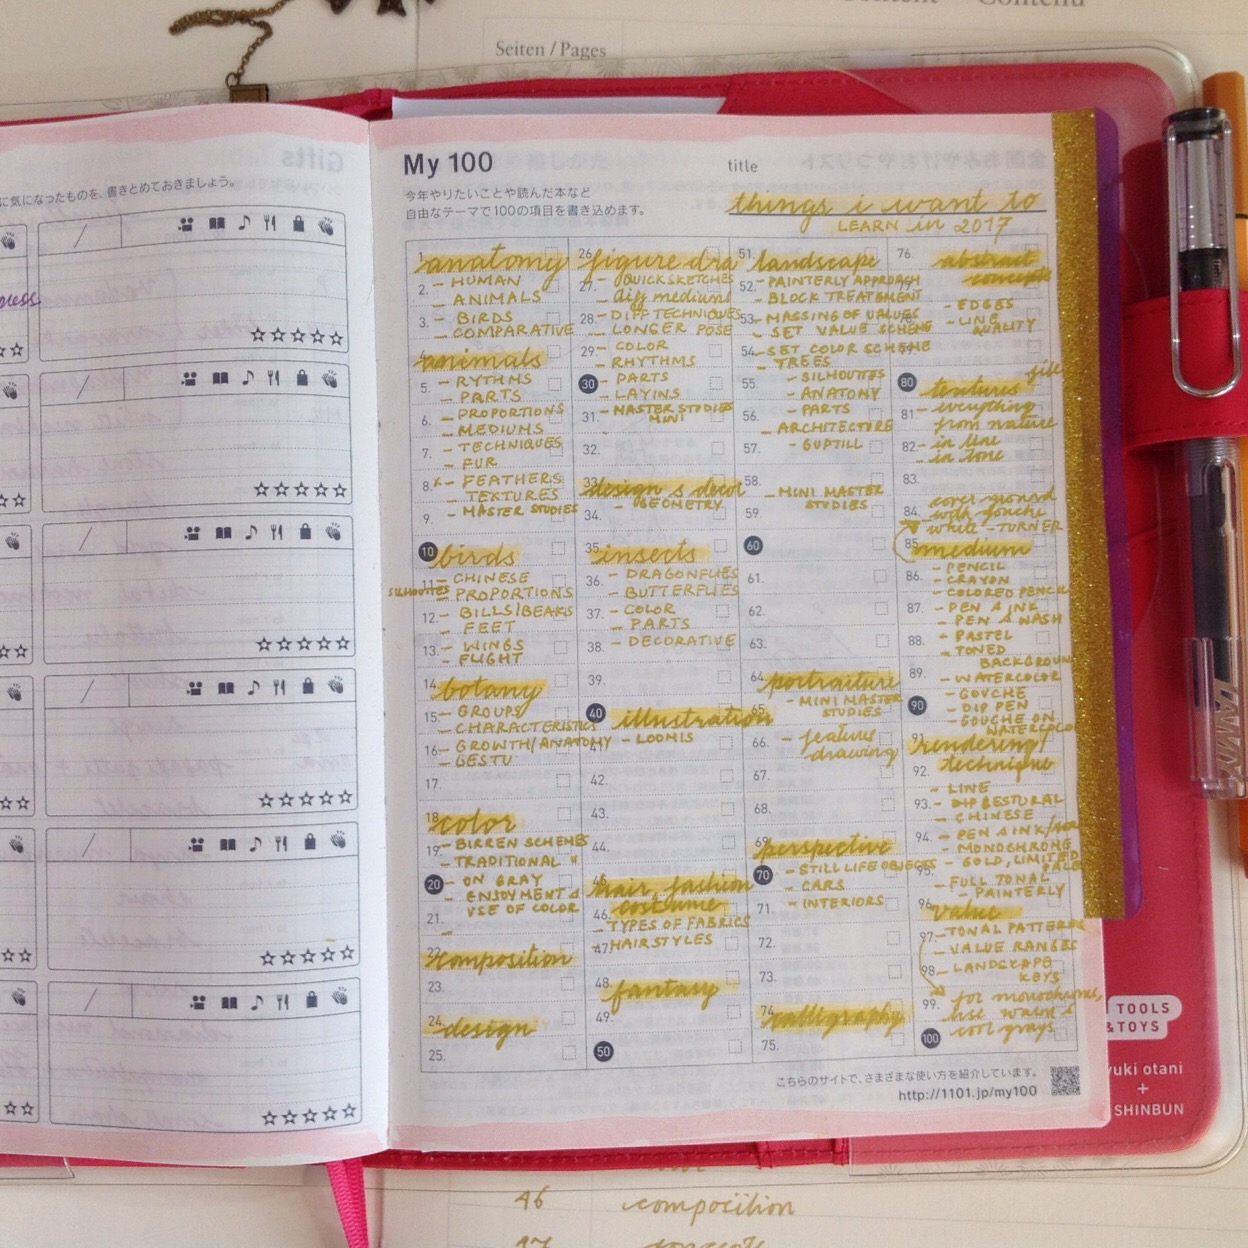 Seiten / Pages
に気になったものを、書きとめておきましょう。
My 100
title
今年やりたいことや読んだ本など
自由なテーマで100の項目を書き込めます。
things i want to
LEARN in 2017
1. anatomy
2. - HUMAN
- ANIMALS
3. - BIRDS
- COMPARATIVE
4. animals
5. - RYTHMS
- PARTS
6. - PROPORTIONS
- MEDIUMS
7. - TECHNIQUES
- FUR
8. - FEATHERS
TEXTURES
9. - MASTER STUDIES
10 birds
11. - CHINESE
SILHOUTTES - PROPORTIONS
12. - BILLS/BEAKS
- FEET
13. - WINGS
- FLIGHT
14. botany
15. - GROUPS
- CHARACTERISTICS
16. - GROWTH/ANATOMY
- GESTU
17.
18. color
19. - BIRREN SCHEMES
- TRADITIONAL "
20 - ON GRAY
- ENJOYMENT &
21. USE OF COLOR
22. composition
23.
24. design
25.
26. figure dra
27. - QUICKSKETCHES
- diff mediums
28. - DIFF TECHNIQUES
- LONGER POSE
29. - COLOR
- RHYTHMS
30 - PARTS
- LAYINS
31. - MASTER STUDIES
MINI
32.
33. design & decor
- GEOMETRY
34.
35. insects
36. - DRAGONFLIES
- BUTTERFLIES
37. - COLOR
- PARTS
38. - DECORATIVE
39.
40 illustration
41. - LOOMIS
42.
43.
44.
45. hair, fashion
46. costume
- TYPES OF FABRICS
47. - HAIRSTYLES
48. fantasy
49.
50
51. landscape
52. - PAINTERLY APPROACH
- BLOCK TREATMENT
53. - MASSING OF VALUES
- SET VALUE SCHEME
54. - SET COLOR SCHEME
- TREES
55. - SILHOUTTES
- ANATOMY
56. - PARTS
- ARCHITECTURE
57. - GUPTILL
58. - MINI MASTER
STUDIES
59.
60
61.
62.
63.
64. portraiture
65. - MINI MASTER
STUDIES
66. - features
- drawing
67.
68.
69. perspective
70 - STILL LIFE OBJECTS
- CARS
71. - INTERIORS
72.
73.
74. calligraphy
75.
76. abstract
77. concepts
- EDGES
- LINE
QUALITY
79.
80 textures
81. - everything
from nature
82. - in line
- in tone
83.
cover ground
84. with gouche
white - TURNER
85. medium
86. - PENCIL
- CRAYON
- COLORED PENCIL
87. - PEN & INK
- PEN & WASH
88. - PASTEL
- TONED
BACKGROUN
89. - WATERCOLOR
90 - GOUCHE
- DIP PEN
- GOUCHE ON
WATERCOLO
91. rendering/
technique
92. - LINE
93. - DIP GESTURAL
- CHINESE
94. - PEN & INK/
- MONOCHROME
95. - GOLD, LIMITED
- FULL TONAL
- PAINTERLY
96. value
97. - TONAL PATTERNS
- VALUE RANGES
98. - LANDSCAPE
KEYS
99. for monochrome,
use warm &
100 cool grays
こちらのサイトで、さまざまな使い方を紹介しています。
http://1101.jp/my100
LAMY
TOOLS
& TOYS
yuki otani
+
SHINBUN
46 composition
47